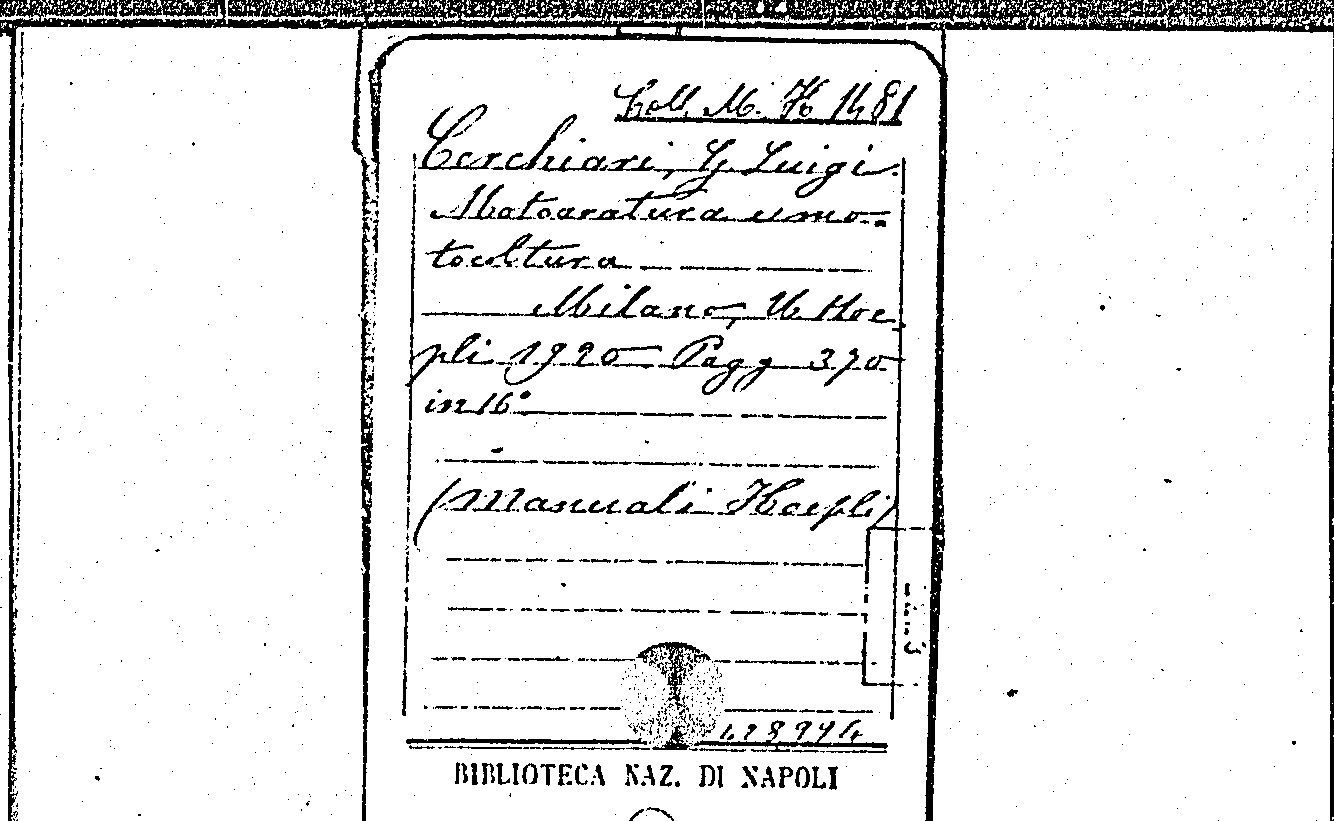 Coll. M. H 1481
Cerchiari, G. Luigi.
Motoaratura e mo-
tocoltura
Milano, U. Hoe-
pli 1920 Pagg 390
in 16°
(Manuali Hoepli)
BIBLIOTECA NAZ. DI NAPOLI